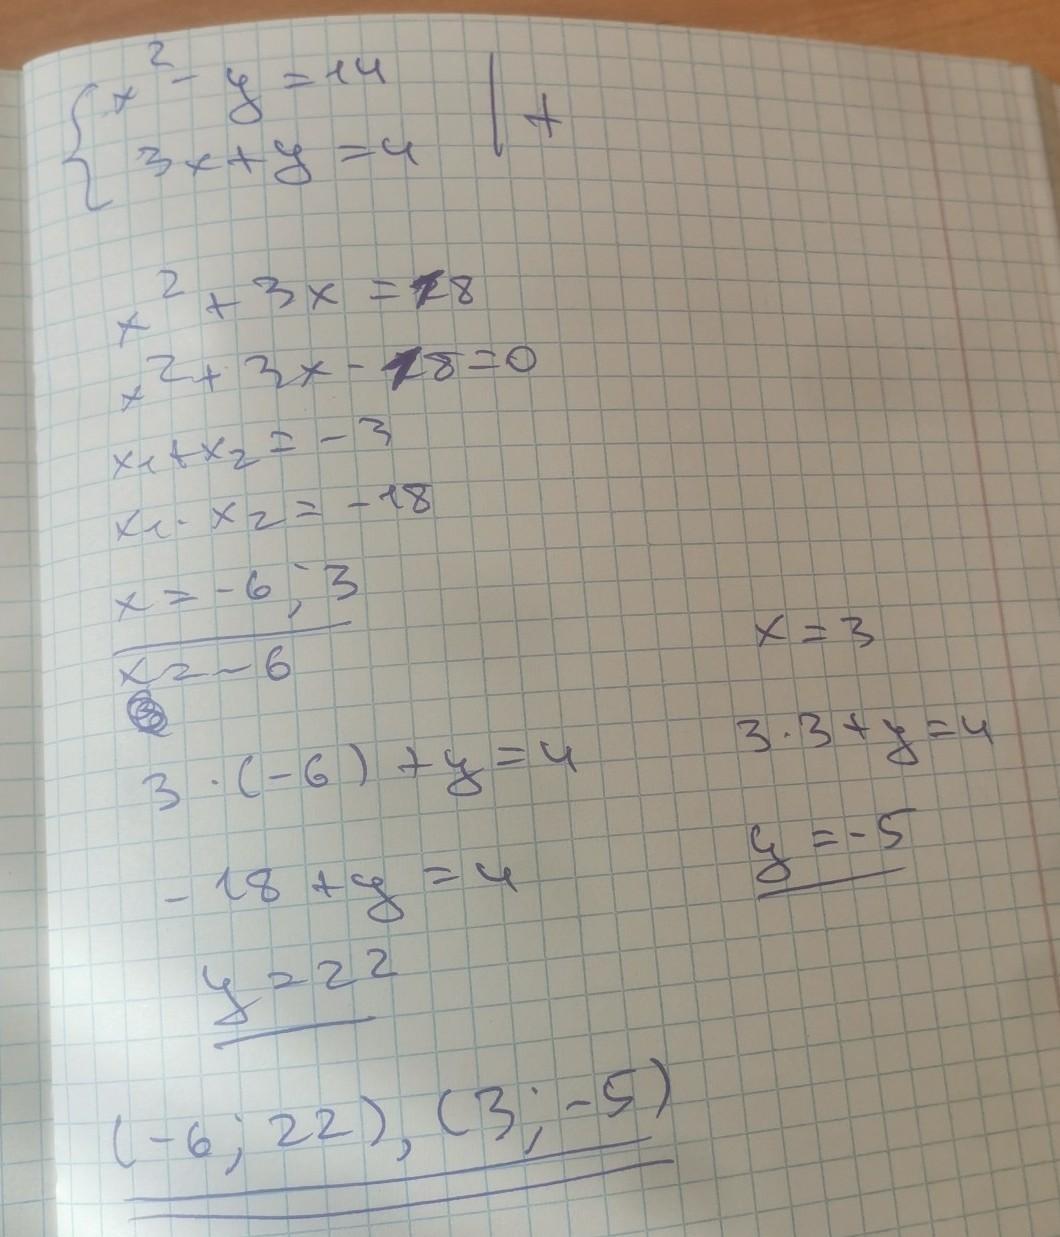 x² - y = 14
3x + y = 4 | +
x² + 3x = 18
x² + 3x - 18 = 0
x₁ + x₂ = -3
x₁ · x₂ = -18
x = -6 ; 3
x = -6
3 · (-6) + y = 4
-18 + y = 4
y = 22
x = 3
3 · 3 + y = 4
y = -5
(-6 ; 22), (3 ; -5)